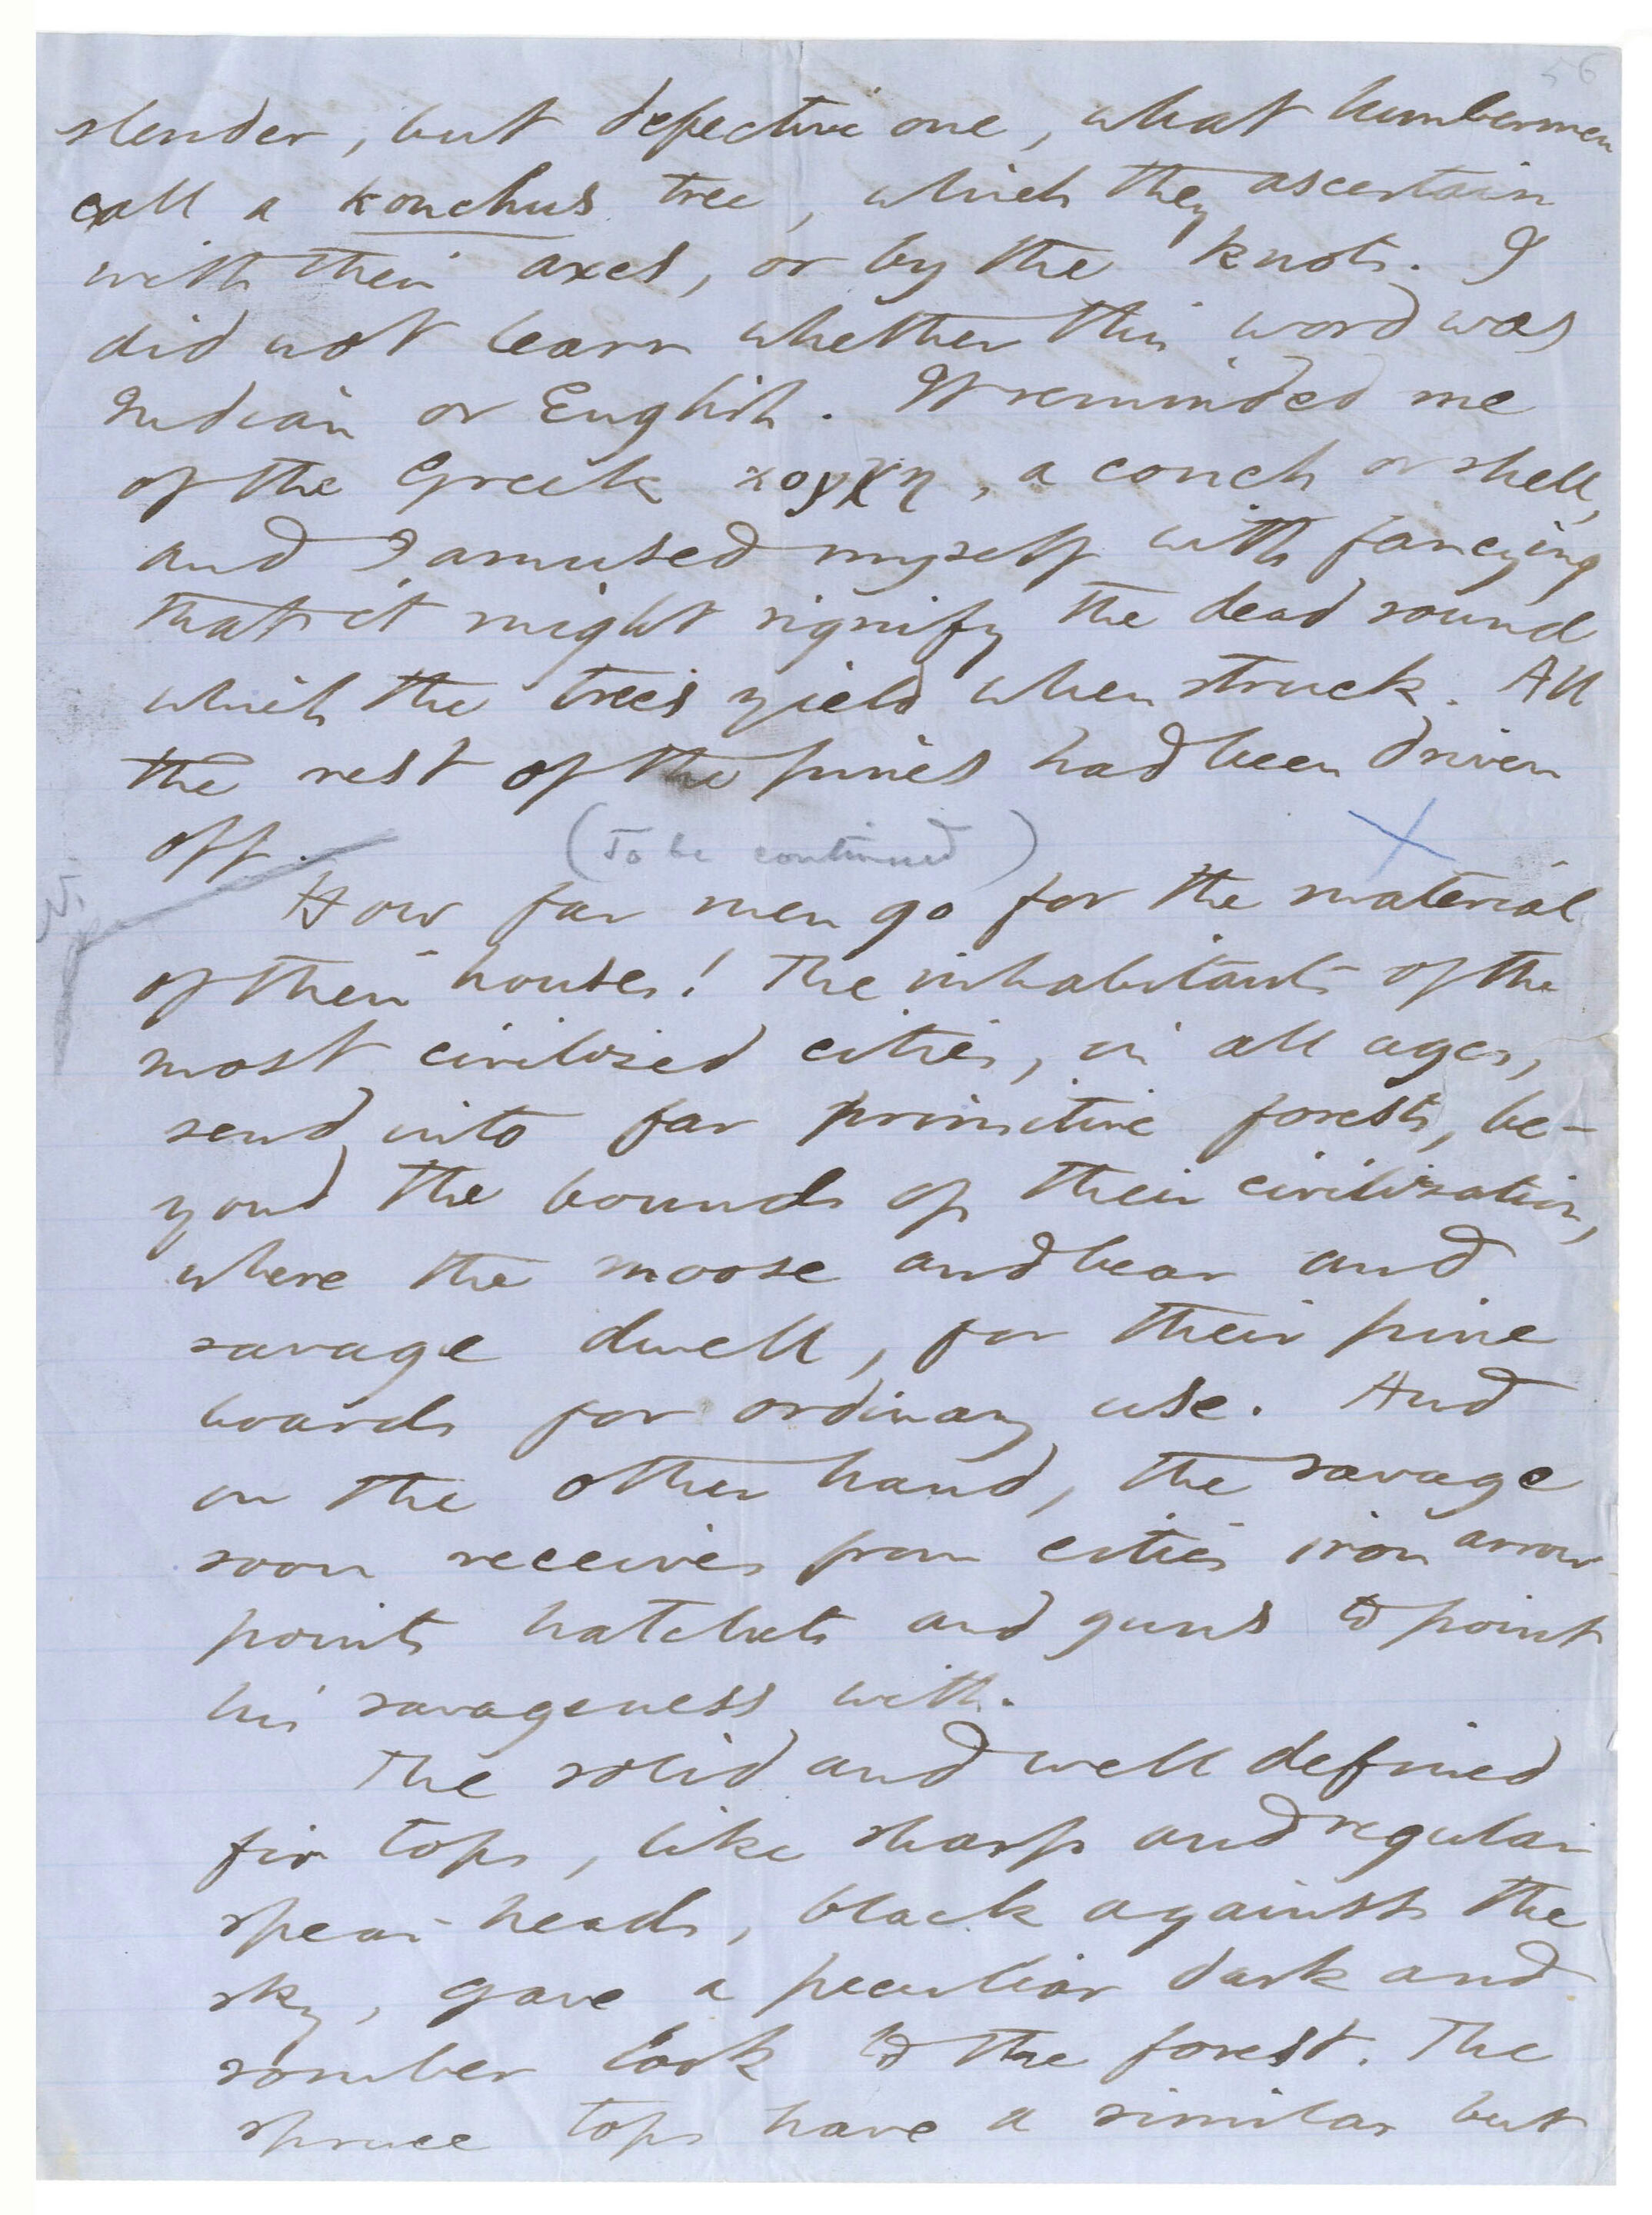 56
slender, but defective one, what lumbermen
call a konchus tree, which they ascertain
with their axes, or by the knots. I
did not learn whether this word was
Indian or English. It reminded me
of the Greek κογχη, a conch or shell,
and I amused myself with fancying
that it might signify the dead sound
which the trees yield when struck. All
the rest of the pines had been driven
off.
(To be continued)
How far men go for the material
of their houses! The inhabitants of the
most civilized cities, in all ages,
send into far primitive forests, be-
yond the bounds of their civilization,
where the moose and bear and
savage dwell, for their pine
boards for ordinary use. And
on the other hand, the savage
soon receives from cities iron arrow
points hatchets and guns to point
his savageness with.
The solid and well defined
fir tops, like sharp and regular
spear heads, black against the
sky, gave a peculiar dark and
somber look to the forest. The
spruce tops have a similar but